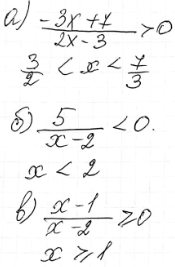 а) (-3x+7)/(2x-3) > 0
3/2 < x < 7/3
б) 5/(x-2) < 0.
x < 2
в) (x-1)/(x-2) ≥ 0
x ≥ 1